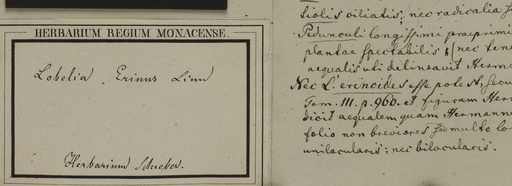 HERBARIUM REGIUM MONACENSE.
Lobelia Erinus Linn
Herbarium Schreber.
tiolis ciliatis; nec radicalia
Pedunculi longissimi praeprimi
plantae spectabilis (nec
aequalis uti delineavit Herm
Nec L. erinoides esse potest,
Tom. III. p. 960. et figuram Herm
dicit aequalem quam Hermann
folio non breviores sed multo lo
unilocularis; nec bilocularis.